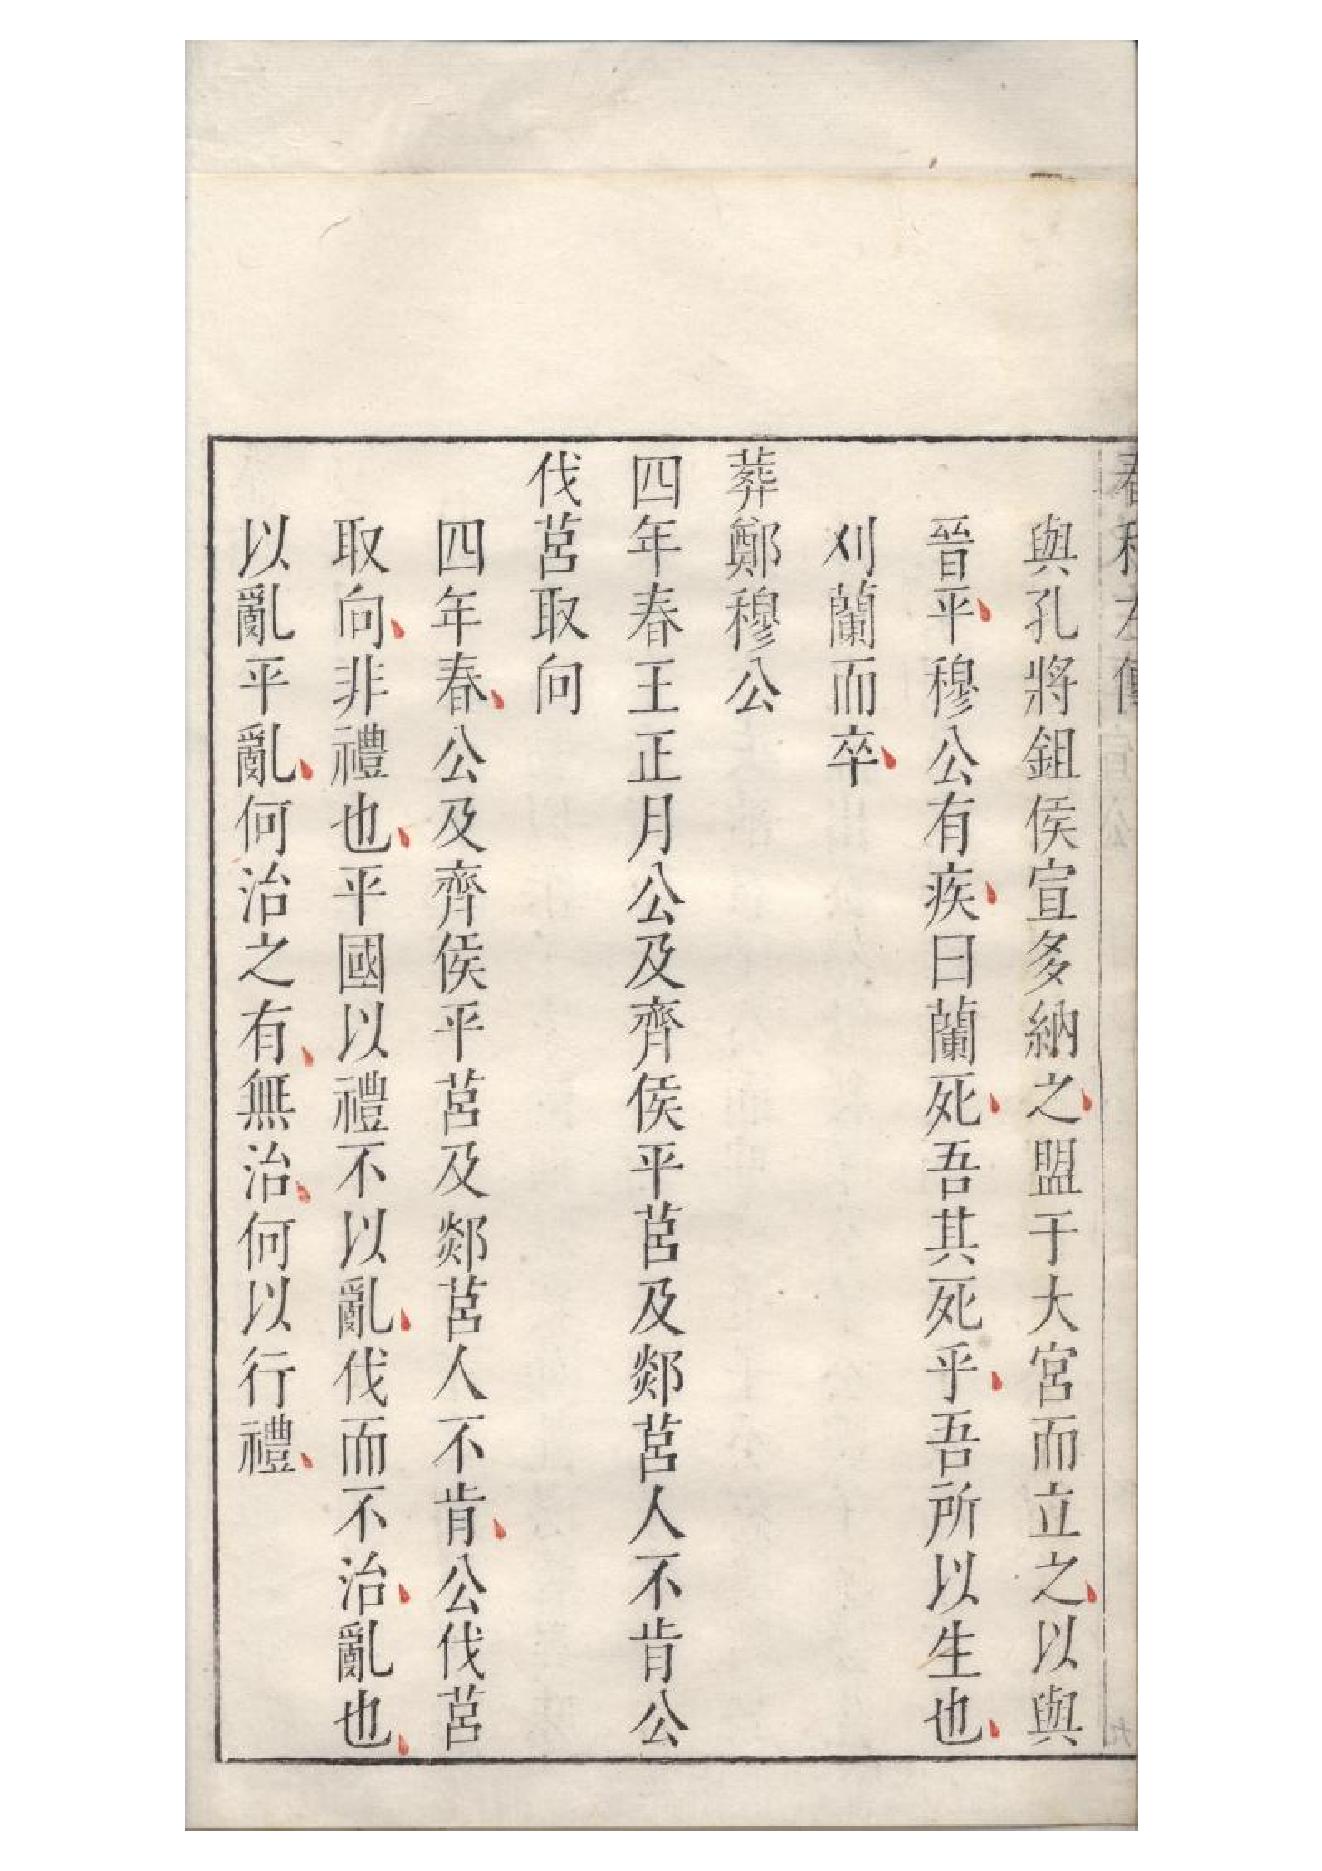 春秋左傳
與孔將鉏侯宣多納之盟于大宮而立之以與
晉平穆公有疾曰蘭死吾其死乎吾所以生也
刈蘭而卒
葬鄭穆公
四年春王正月公及齊侯平莒及郯莒人不肯公
伐莒取向
四年春公及齊侯平莒及郯莒人不肯公伐莒
取向非禮也平國以禮不以亂伐而不治亂也
以亂平亂何治之有無治何以行禮